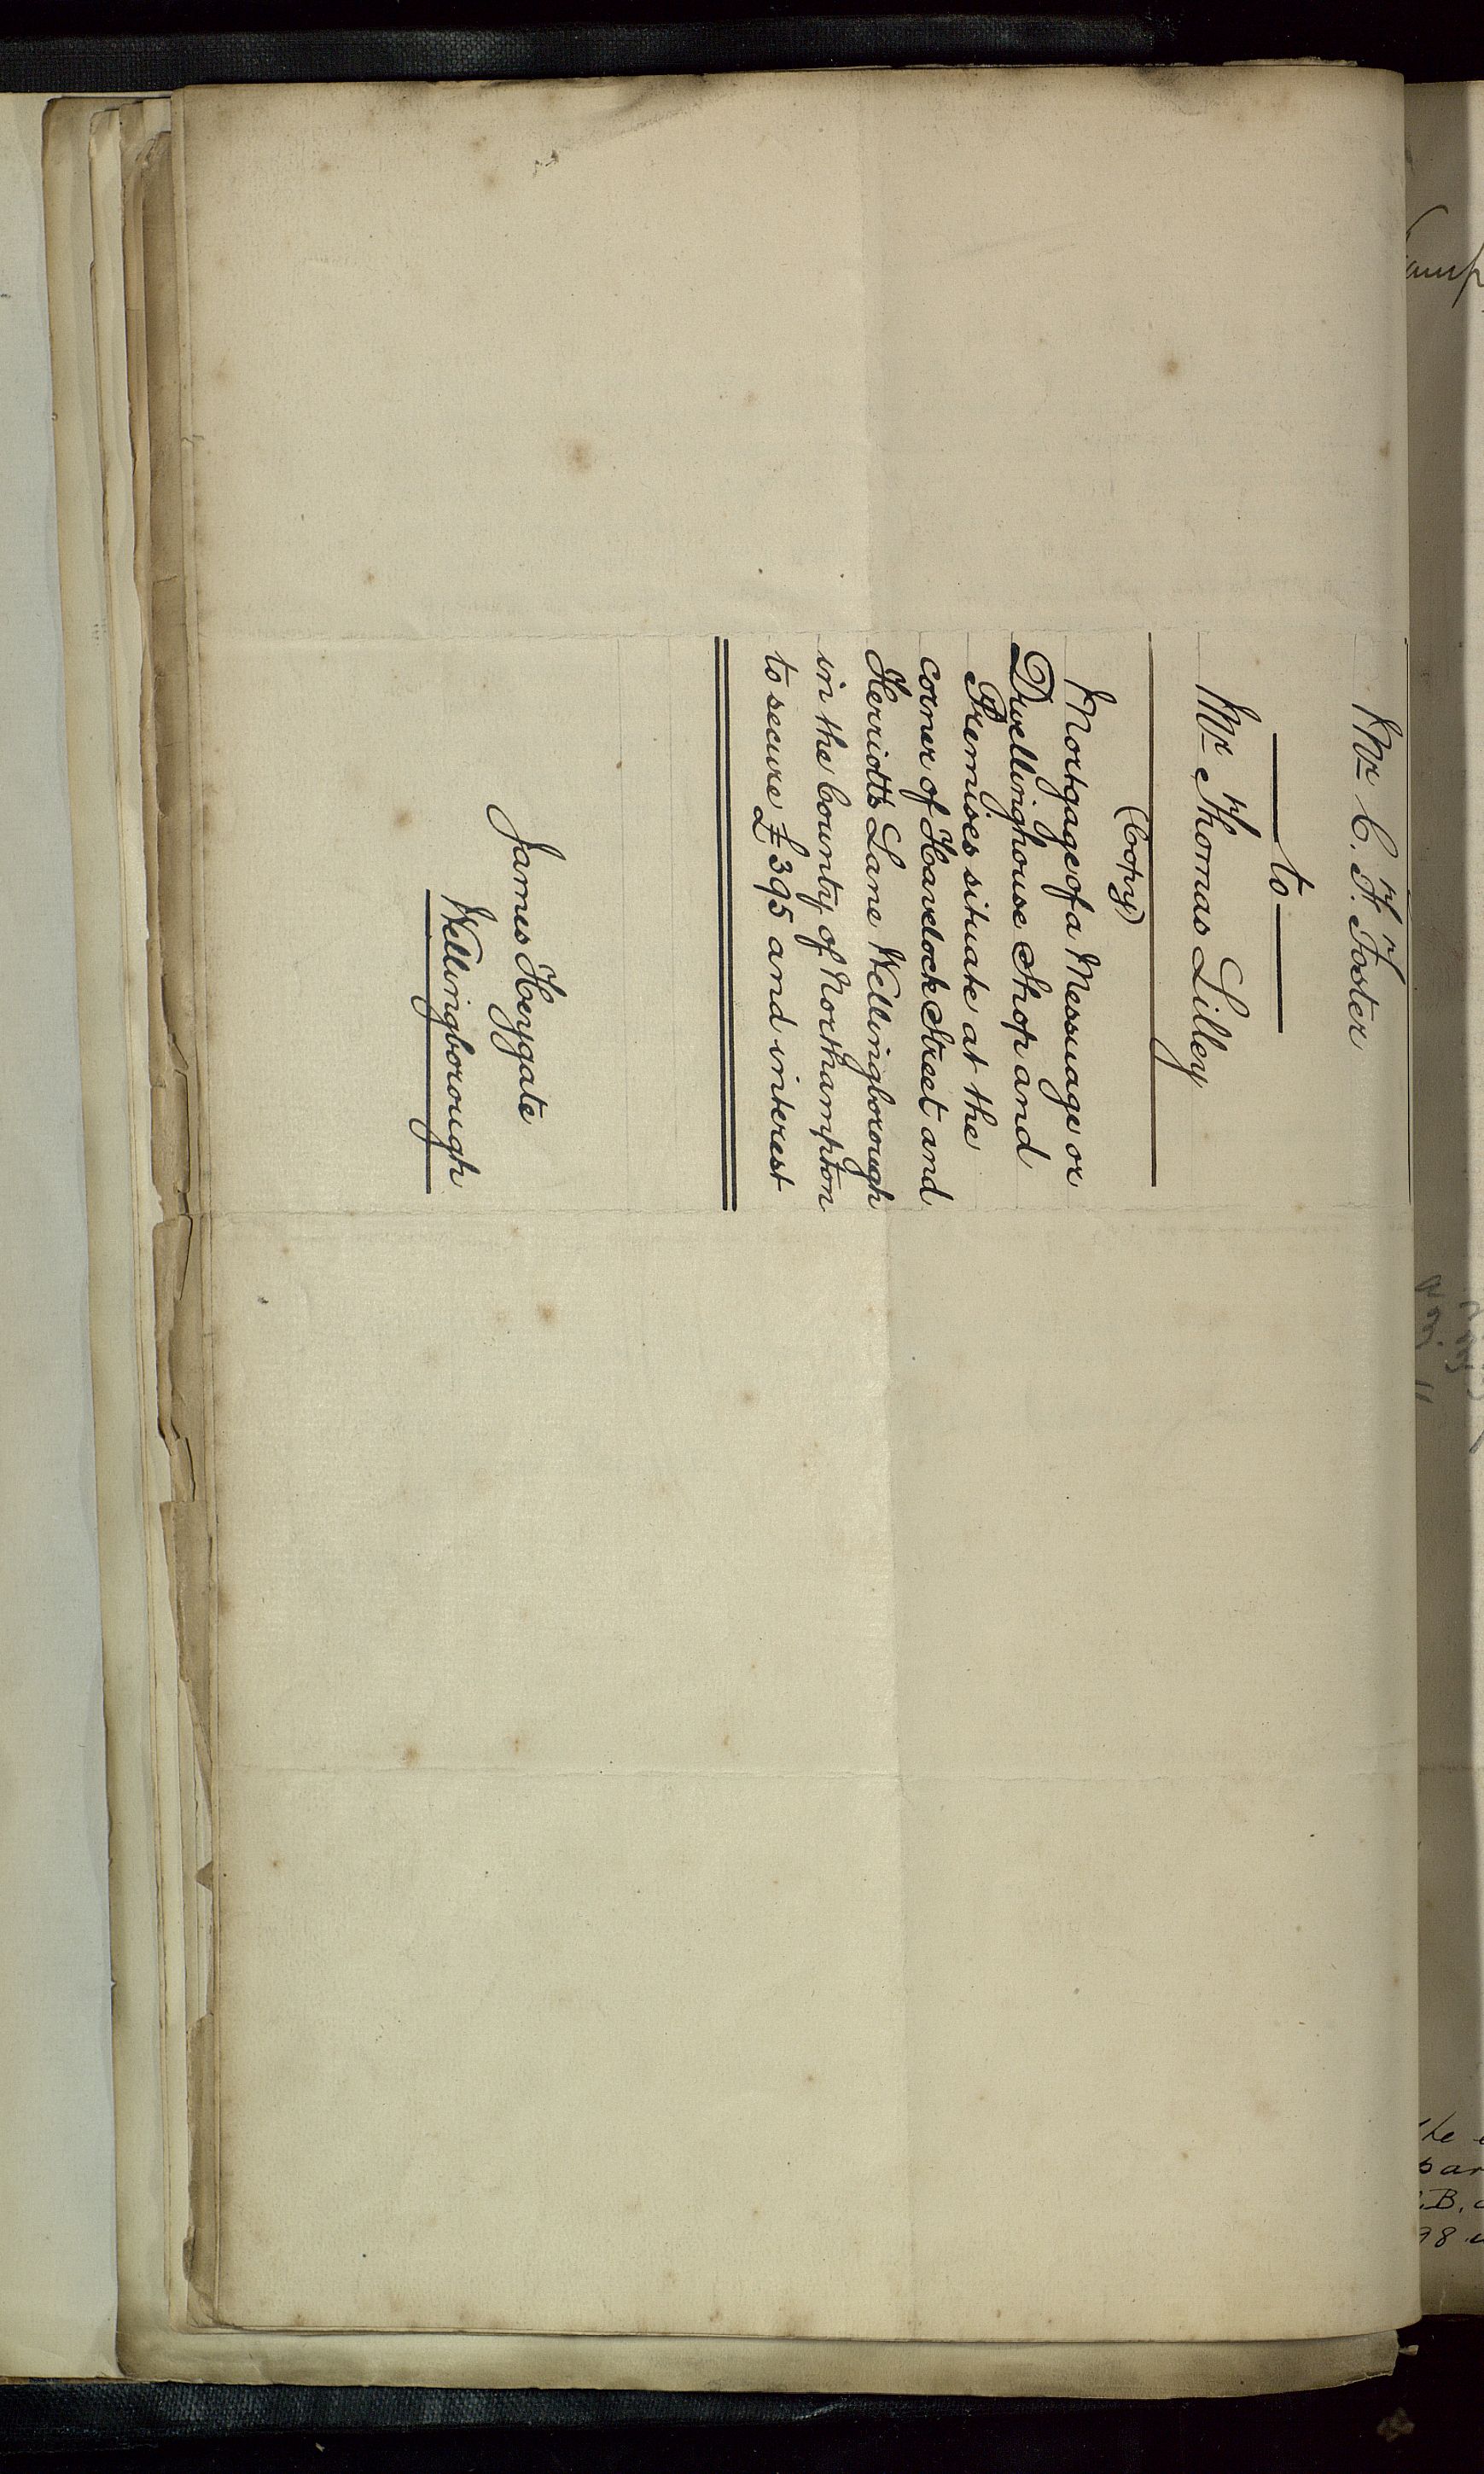 Mr C. F. Foster
to
Mr Thomas Lilley
(Copy)
Mortgage of a Messuage or
Dwellinghouse Shop and
Premises situate at the
corner of Havelock Street and
Herriotts Lane Wellingborough
in the County of Northampton
to secure £395 and interest
James Heygate
Wellingborough